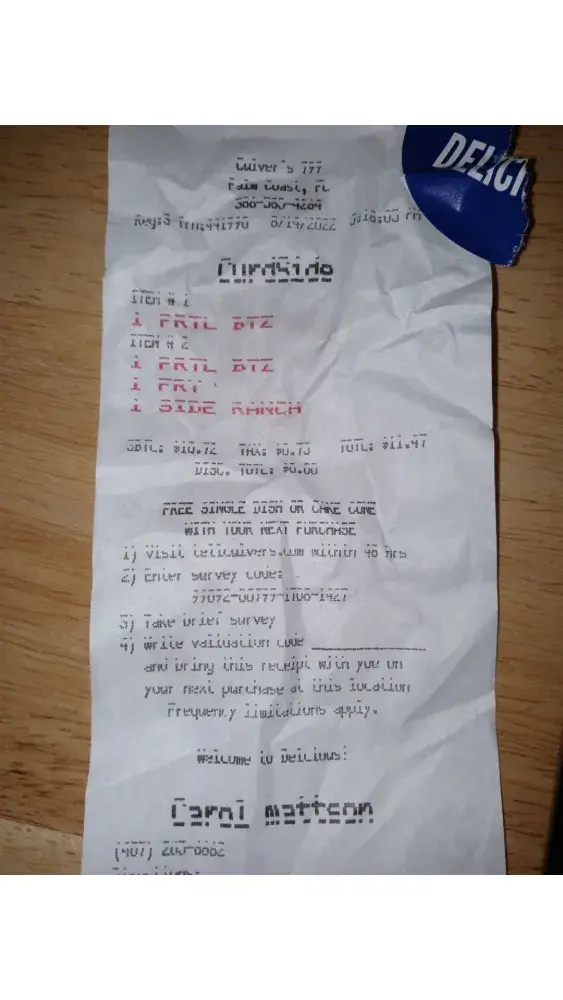 DELICI
Culver's 777
Palm Coast, FL
Reg:3 8/19/2022 PM
CurdSide
ITEM # 1
1 PRTL BTZ
ITEM # 2
1 PRTL BTZ
1 FRY
1 SIDE RANCH
SBTL: $10.72 TAX: $0.75 TOTL: $11.47
DISC. TOTL: $0.00
FREE SINGLE DISH OR CAKE CONE
WITH YOUR NEXT PURCHASE
1) Visit tellculvers.com within 48 hrs
2) Enter survey code:
3) Take brief survey
4) Write validation code
and bring this receipt with you on
your next purchase at this location
Frequency limitations apply.
Welcome to Delicious!
Carol mattson